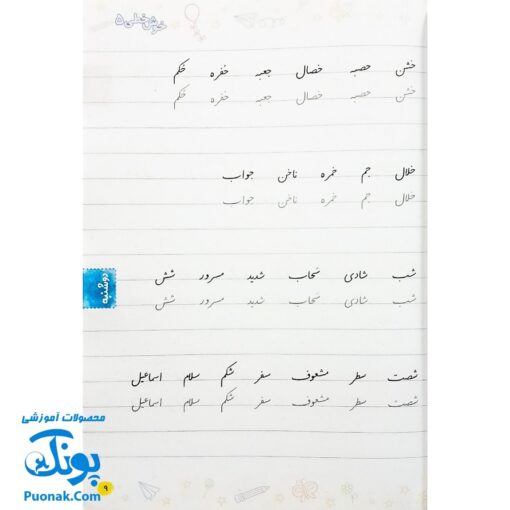 خوش خطی ۵
خشن حصبه خصال جعبه حفره حکم
خشن حصبه خصال جعبه حفره حکم
خلال جم خمره ناخن جواب
خلال جم خمره ناخن جواب
شب شادی سحاب شدید مسرور شش
شب شادی سحاب شدید مسرور شش
دوشنبه
شصت سطر مشعوف سفر شکم سلام اسماعیل
شصت سطر مشعوف سفر شکم سلام اسماعیل
محصولات آموزشی
پونک
Puonak.Com
۹